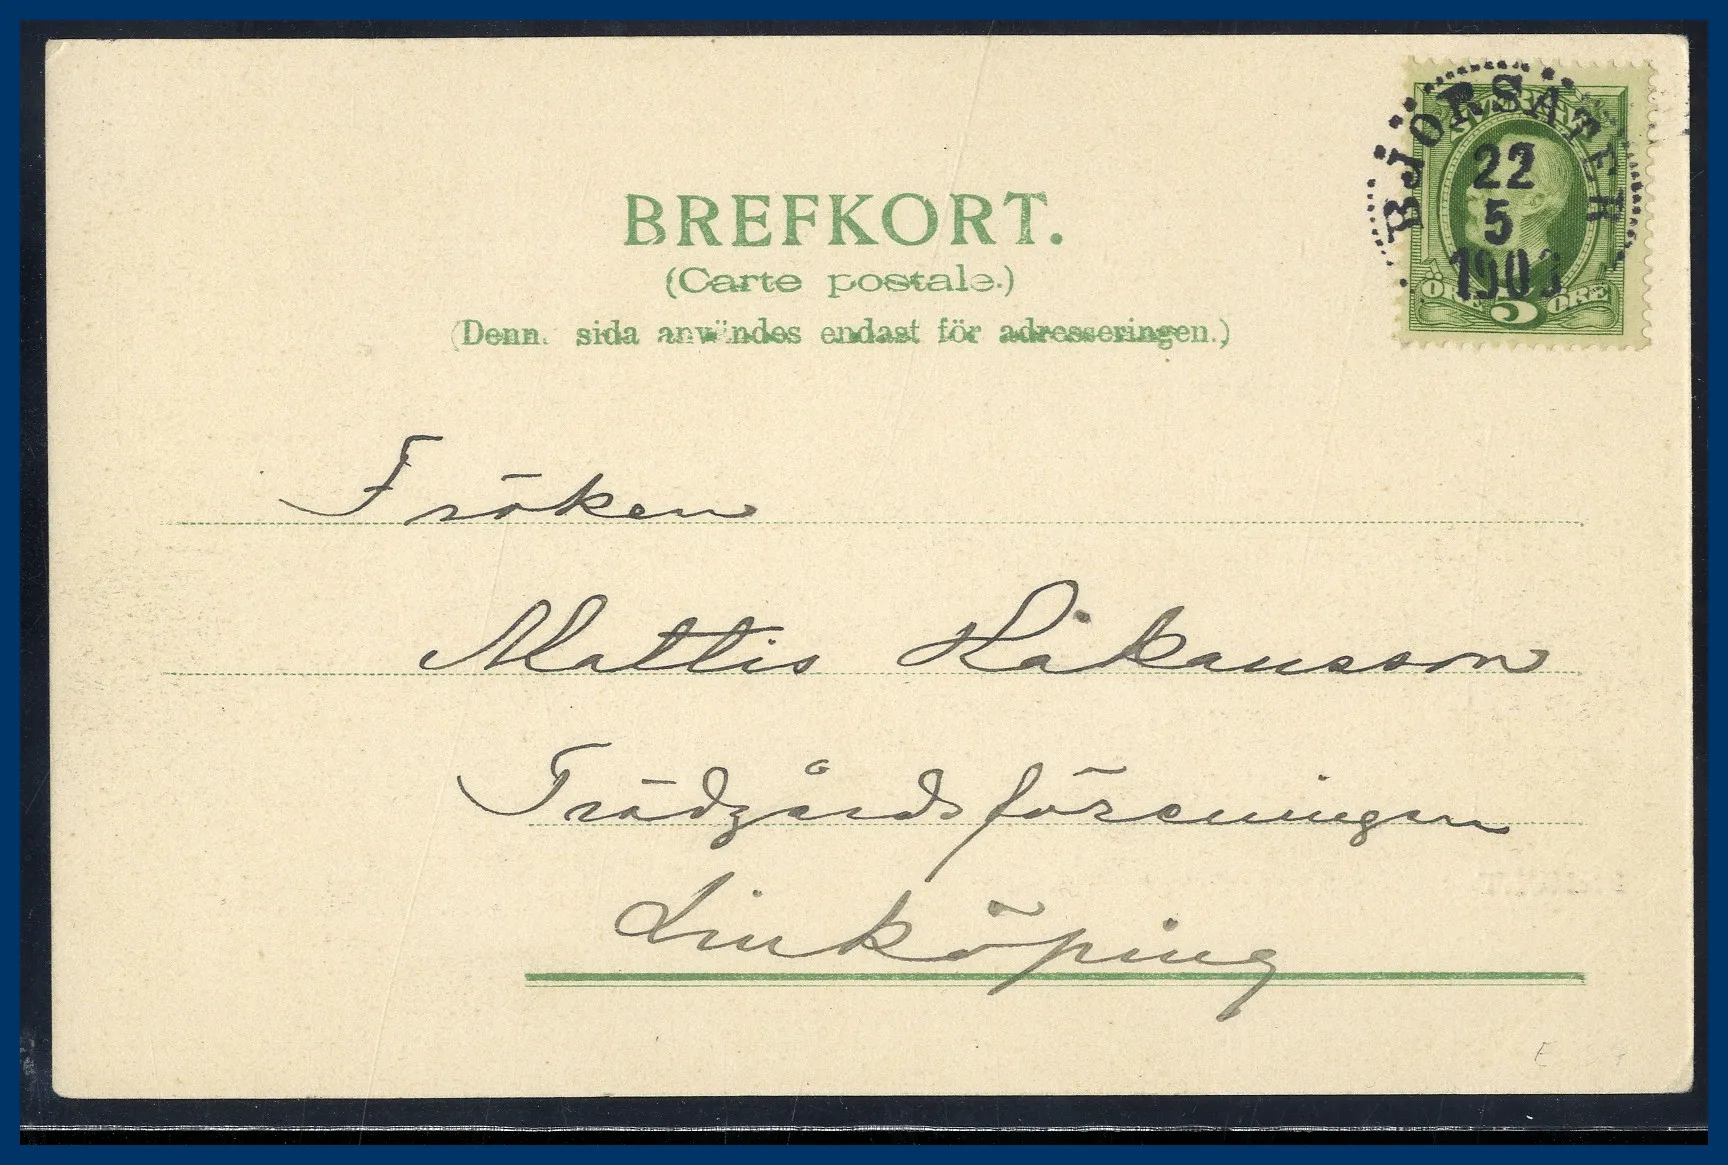 BJORSATER
22
5
1903
ÖRE 5 ÖRE
BREFKORT.
(Carte postale.)
(Denn. sida användes endast för adresseringen.)
Fröken
Mattis Håkansson
Trädgårdsföreningen
Linköping
E